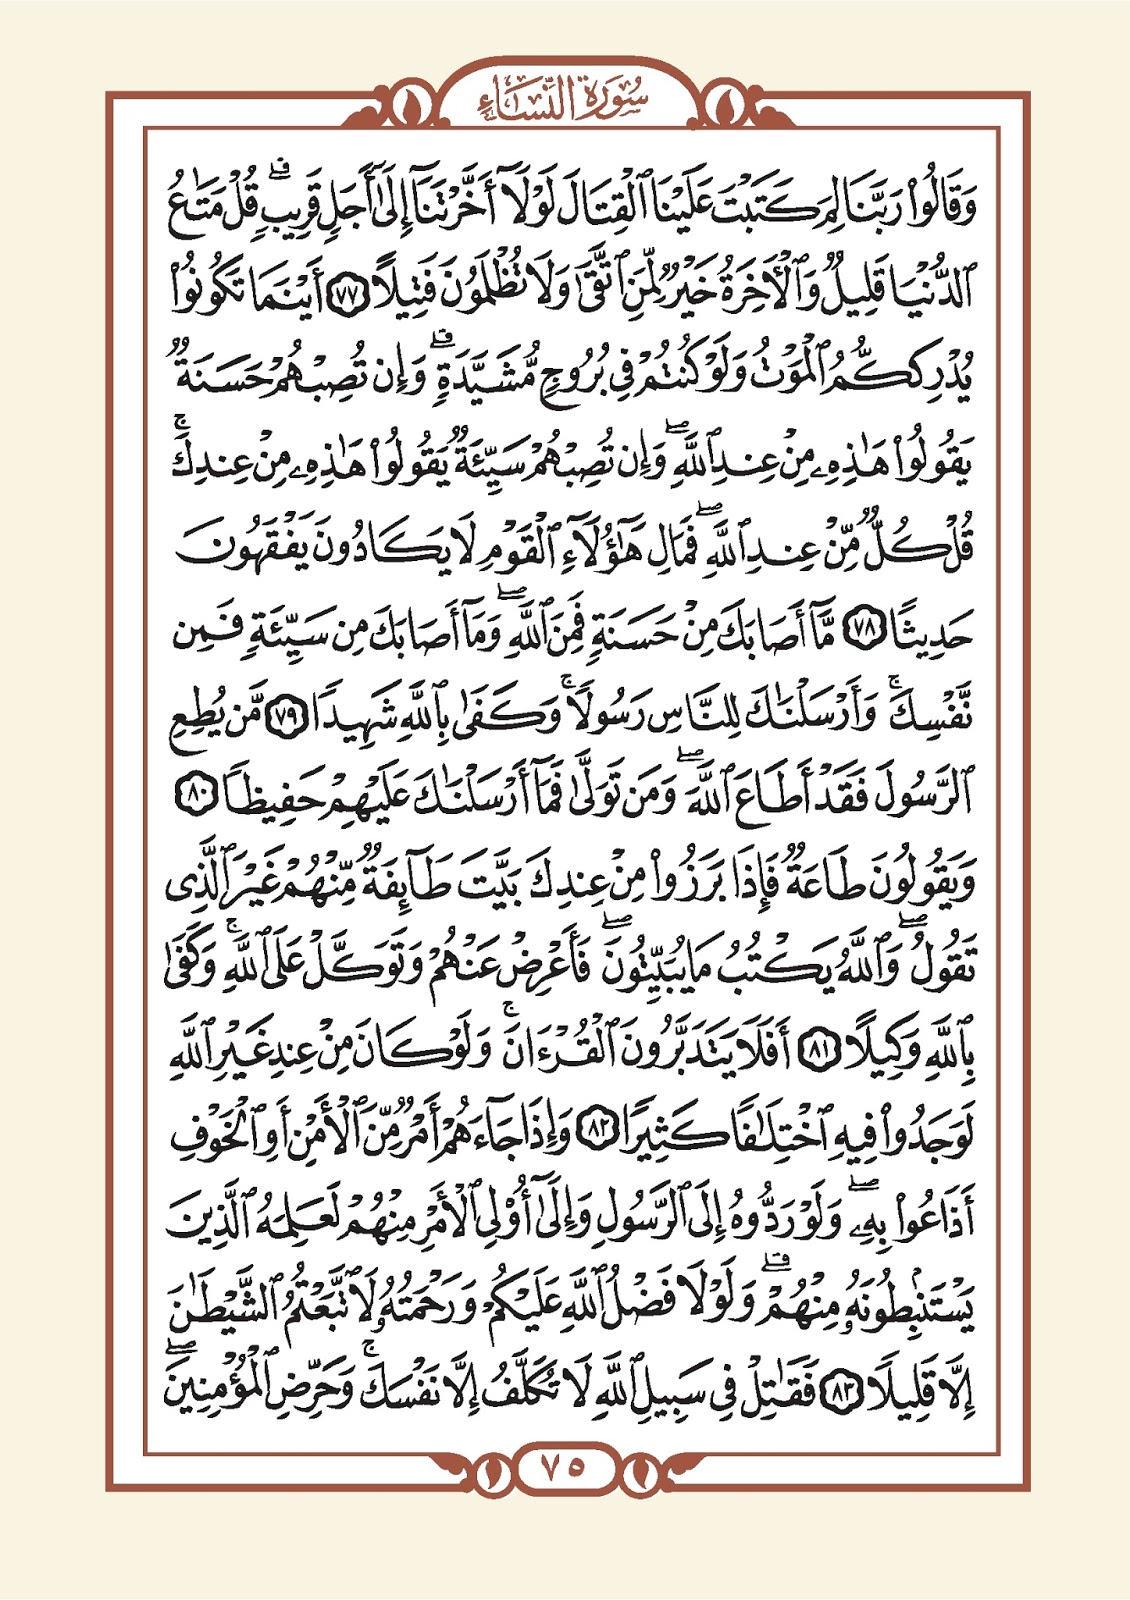 سُورَةُ النِّسَاءِ
وَقَالُوا۟ رَبَّنَا لِمَ كَتَبْتَ عَلَيْنَا ٱلْقِتَالَ لَوْلَآ أَخَّرْتَنَآ إِلَىٰٓ أَجَلٍ قَرِيبٍۗ قُلْ مَتَٰعُ
ٱلدُّنْيَا قَلِيلٌ وَٱلْـَٔاخِرَةُ خَيْرٌ لِّمَنِ ٱتَّقَىٰ وَلَا تُظْلَمُونَ فَتِيلًا ٧٧ أَيْنَمَا تَكُونُوا۟
يُدْرِككُّمُ ٱلْمَوْتُ وَلَوْ كُنتُمْ فِى بُرُوجٍ مُّشَيَّدَةٍۗ وَإِن تُصِبْهُمْ حَسَنَةٌ
يَقُولُوا۟ هَٰذِهِۦ مِنْ عِندِ ٱللَّهِۖ وَإِن تُصِبْهُمْ سَيِّئَةٌ يَقُولُوا۟ هَٰذِهِۦ مِنْ عِندِكَۚ
قُلْ كُلٌّ مِّنْ عِندِ ٱللَّهِۖ فَمَالِ هَٰٓؤُلَآءِ ٱلْقَوْمِ لَا يَكَادُونَ يَفْقَهُونَ
حَدِيثًا ٧٨ مَّآ أَصَابَكَ مِنْ حَسَنَةٍ فَمِنَ ٱللَّهِۖ وَمَآ أَصَابَكَ مِن سَيِّئَةٍ فَمِن
نَّفْسِكَۚ وَأَرْسَلْنَٰكَ لِلنَّاسِ رَسُولًاۚ وَكَفَىٰ بِٱللَّهِ شَهِيدًا ٧٩ مَّن يُطِعِ
ٱلرَّسُولَ فَقَدْ أَطَاعَ ٱللَّهَۖ وَمَن تَوَلَّىٰ فَمَآ أَرْسَلْنَٰكَ عَلَيْهِمْ حَفِيظًا ٨٠
وَيَقُولُونَ طَاعَةٌ فَإِذَا بَرَزُوا۟ مِنْ عِندِكَ بَيَّتَ طَآئِفَةٌ مِّنْهُمْ غَيْرَ ٱلَّذِى
تَقُولُۖ وَٱللَّهُ يَكْتُبُ مَا يُبَيِّتُونَۖ فَأَعْرِضْ عَنْهُمْ وَتَوَكَّلْ عَلَى ٱللَّهِۚ وَكَفَىٰ
بِٱللَّهِ وَكِيلًا ٨١ أَفَلَا يَتَدَبَّرُونَ ٱلْقُرْءَانَۚ وَلَوْ كَانَ مِنْ عِندِ غَيْرِ ٱللَّهِ
لَوَجَدُوا۟ فِيهِ ٱخْتِلَٰفًا كَثِيرًا ٨٢ وَإِذَا جَآءَهُمْ أَمْرٌ مِّنَ ٱلْأَمْنِ أَوِ ٱلْخَوْفِ
أَذَاعُوا۟ بِهِۦۖ وَلَوْ رَدُّوهُ إِلَى ٱلرَّسُولِ وَإِلَىٰٓ أُو۟لِى ٱلْأَمْرِ مِنْهُمْ لَعَلِمَهُ ٱلَّذِينَ
يَسْتَنۢبِطُونَهُۥ مِنْهُمْۗ وَلَوْلَا فَضْلُ ٱللَّهِ عَلَيْكُمْ وَرَحْمَتُهُۥ لَٱتَّبَعْتُمُ ٱلشَّيْطَٰنَ
إِلَّا قَلِيلًا ٨٣ فَقَٰتِلْ فِى سَبِيلِ ٱللَّهِ لَا تُكَلَّفُ إِلَّا نَفْسَكَۚ وَحَرِّضِ ٱلْمُؤْمِنِينَۖ
٧٥